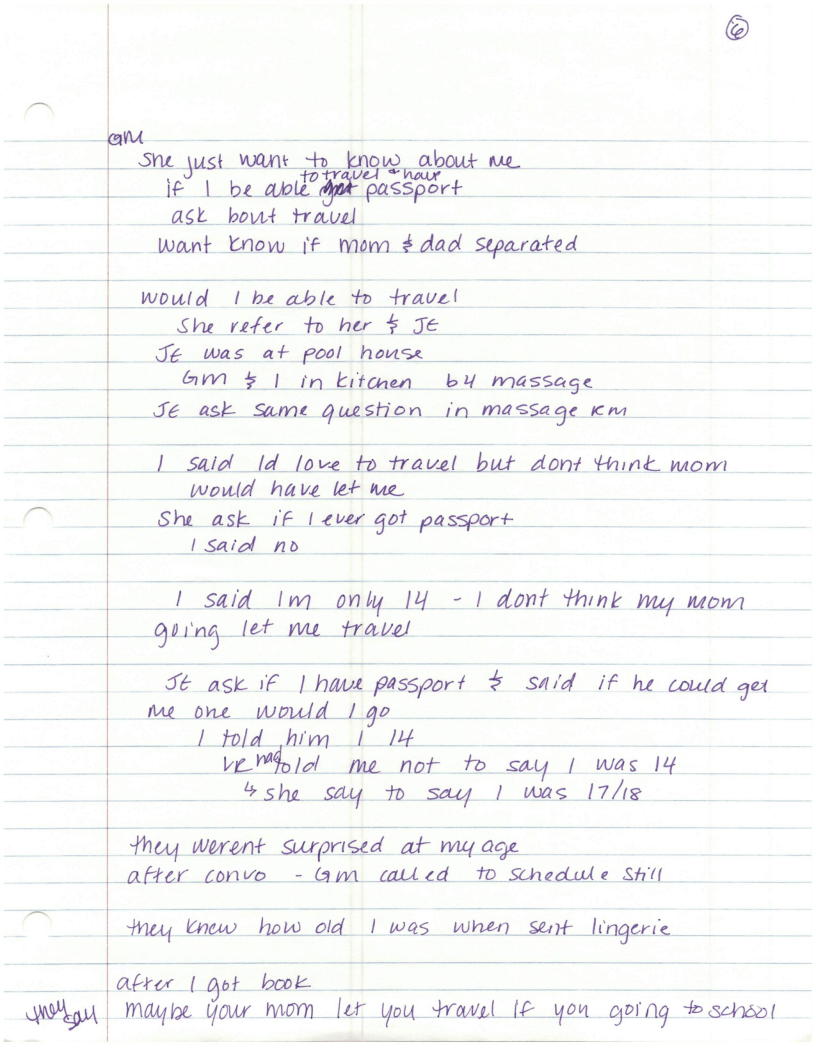 6
GM
She just want to know about me
to travel & have
if I be able passport
ask bout travel
want know if mom & dad separated
would I be able to travel
She refer to her & JE
JE was at pool house
GM & I in kitchen b4 massage
JE ask same question in massage rm
I said Id love to travel but dont think mom
would have let me
She ask if I ever got passport
I said no
I said Im only 14 - I dont think my mom
going let me travel
JE ask if I have passport & said if he could get
me one would I go
I told him I 14
VR had told me not to say I was 14
↳ she say to say I was 17/18
they werent surprised at my age
after convo - GM called to schedule still
they knew how old I was when sent lingerie
after I got book
they say maybe your mom let you travel if you going to school